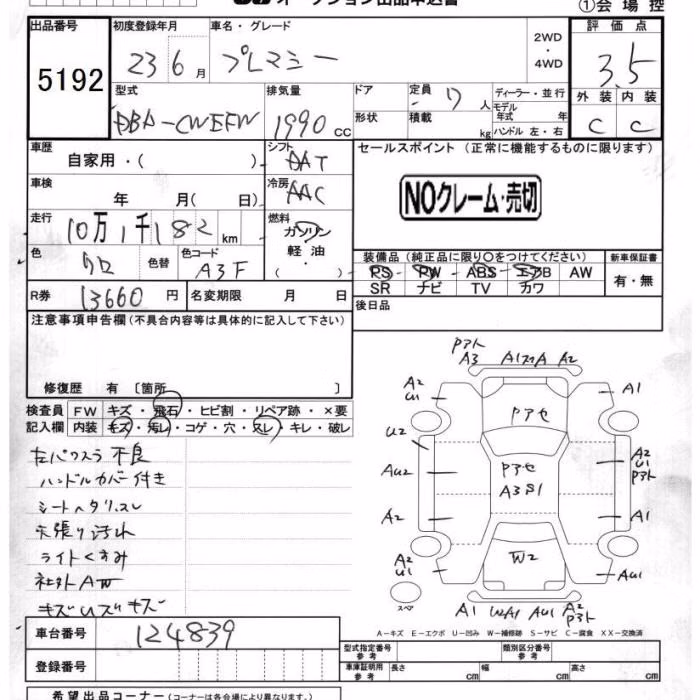 オークション出品申込書
①会場控
出品番号 初度登録年月 車名・グレード 2WD・4WD 評価点
5192 23 6月 プレマシー 3.5
型式 排気量 ドア 定員 7人 ディーラー・並行 外装 内装
DBA-CWEFW 1990 cc 形状 積載 kg モデル年式 年 ハンドル 左・右 C C
車歴 自家用・( ) シフト DAT セールスポイント (正常に機能するものに限ります)
車検 年 月(日) 冷房 AAC NOクレーム・売切
走行 10万1千182 km 燃料 ガソリン
色 クロ 色替 色コード A3F 軽油・( )
装備品 (純正品に限り○をつけてください) 新車保証書
PS PW ABS エアB AW 有・無
SR ナビ TV カワ
R券 13660円 名変期限 月 日 後日品
注意事項申告欄(不具合内容等は具体的に記入して下さい)
修復歴 有 〔箇所 〕
検査員 FW キズ・飛石・ヒビ割・リペア跡・×要
記入欄 内装 キズ・汚レ・コゲ・穴・スレ・キレ・破レ
左パワスラ不良
ハンドルカバー付き
シートヘタリ、スレ
天張り汚れ
ライトくすみ
社外AW
キズUズビキズ
P3ト
A3 A1スマA A2
A2 U1 A1
Pアセ
U2
AU2 Pアセ A3S1 A2 U1 P3ト
A2 A1
A2 U1 W2 AU1
スペア
A1 WA1 AU1 A2 P3ト
A-キズ E-エクボ U-凹み W-補修跡 S-サビ C-腐食 XX-交換済
車台番号 124839
登録番号
型式指定番号 参考 類別区分番号 参考
車庫証明用 参考 長さ cm 幅 cm 高さ cm
希望出品コーナー(コーナーは各会場により異なります)